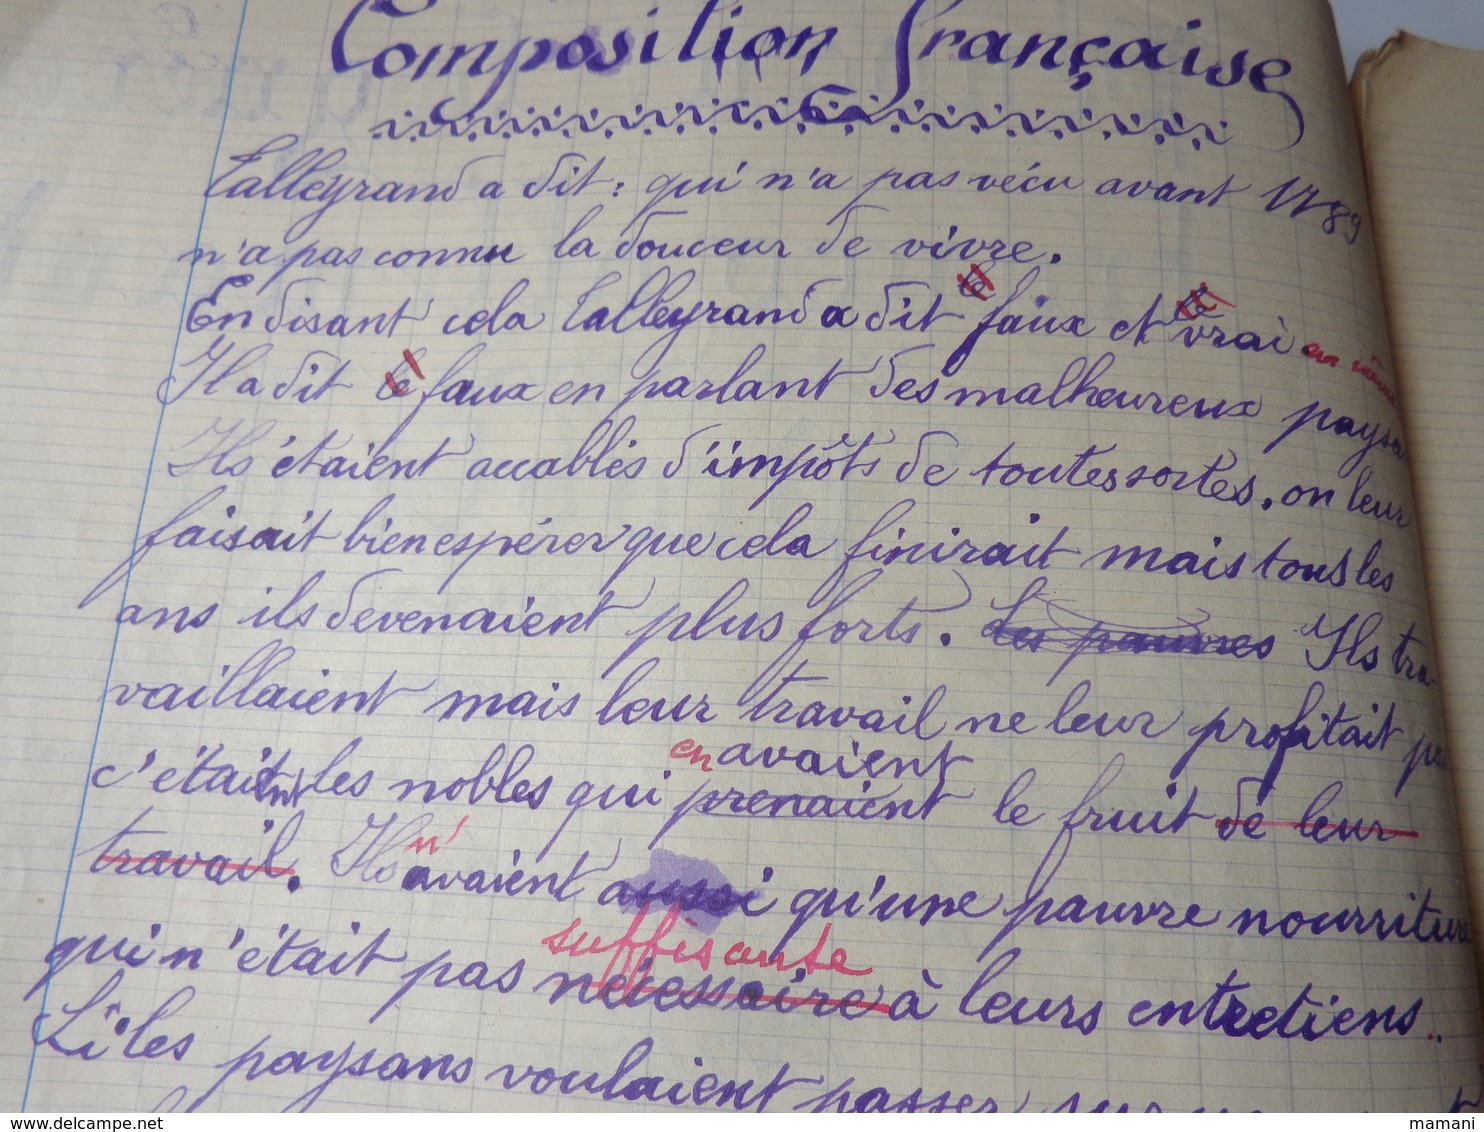 Composition française
Talleyrand a dit : qui n'a pas vécu avant 1789
n'a pas connu la douceur de vivre.
En disant cela Talleyrand a dit le faux et le vrai en même
Il a dit le faux en parlant des malheureux paysa
Ils étaient accablés d'impôts de toutes sortes, on leur
faisait bien espérer que cela finirait mais tous les
ans ils devenaient plus forts. Les pauvres Ils tra-
vaillaient mais leur travail ne leur profitait pa
en avaient
c'étaient les nobles qui prenaient le fruit de leur
travail. Ils n'avaient aussi qu'une pauvre nourriture
suffisante
qui n'était pas nécessaire à leurs entretiens..
Si les paysans voulaient passer sur
delcampe.net
mamani